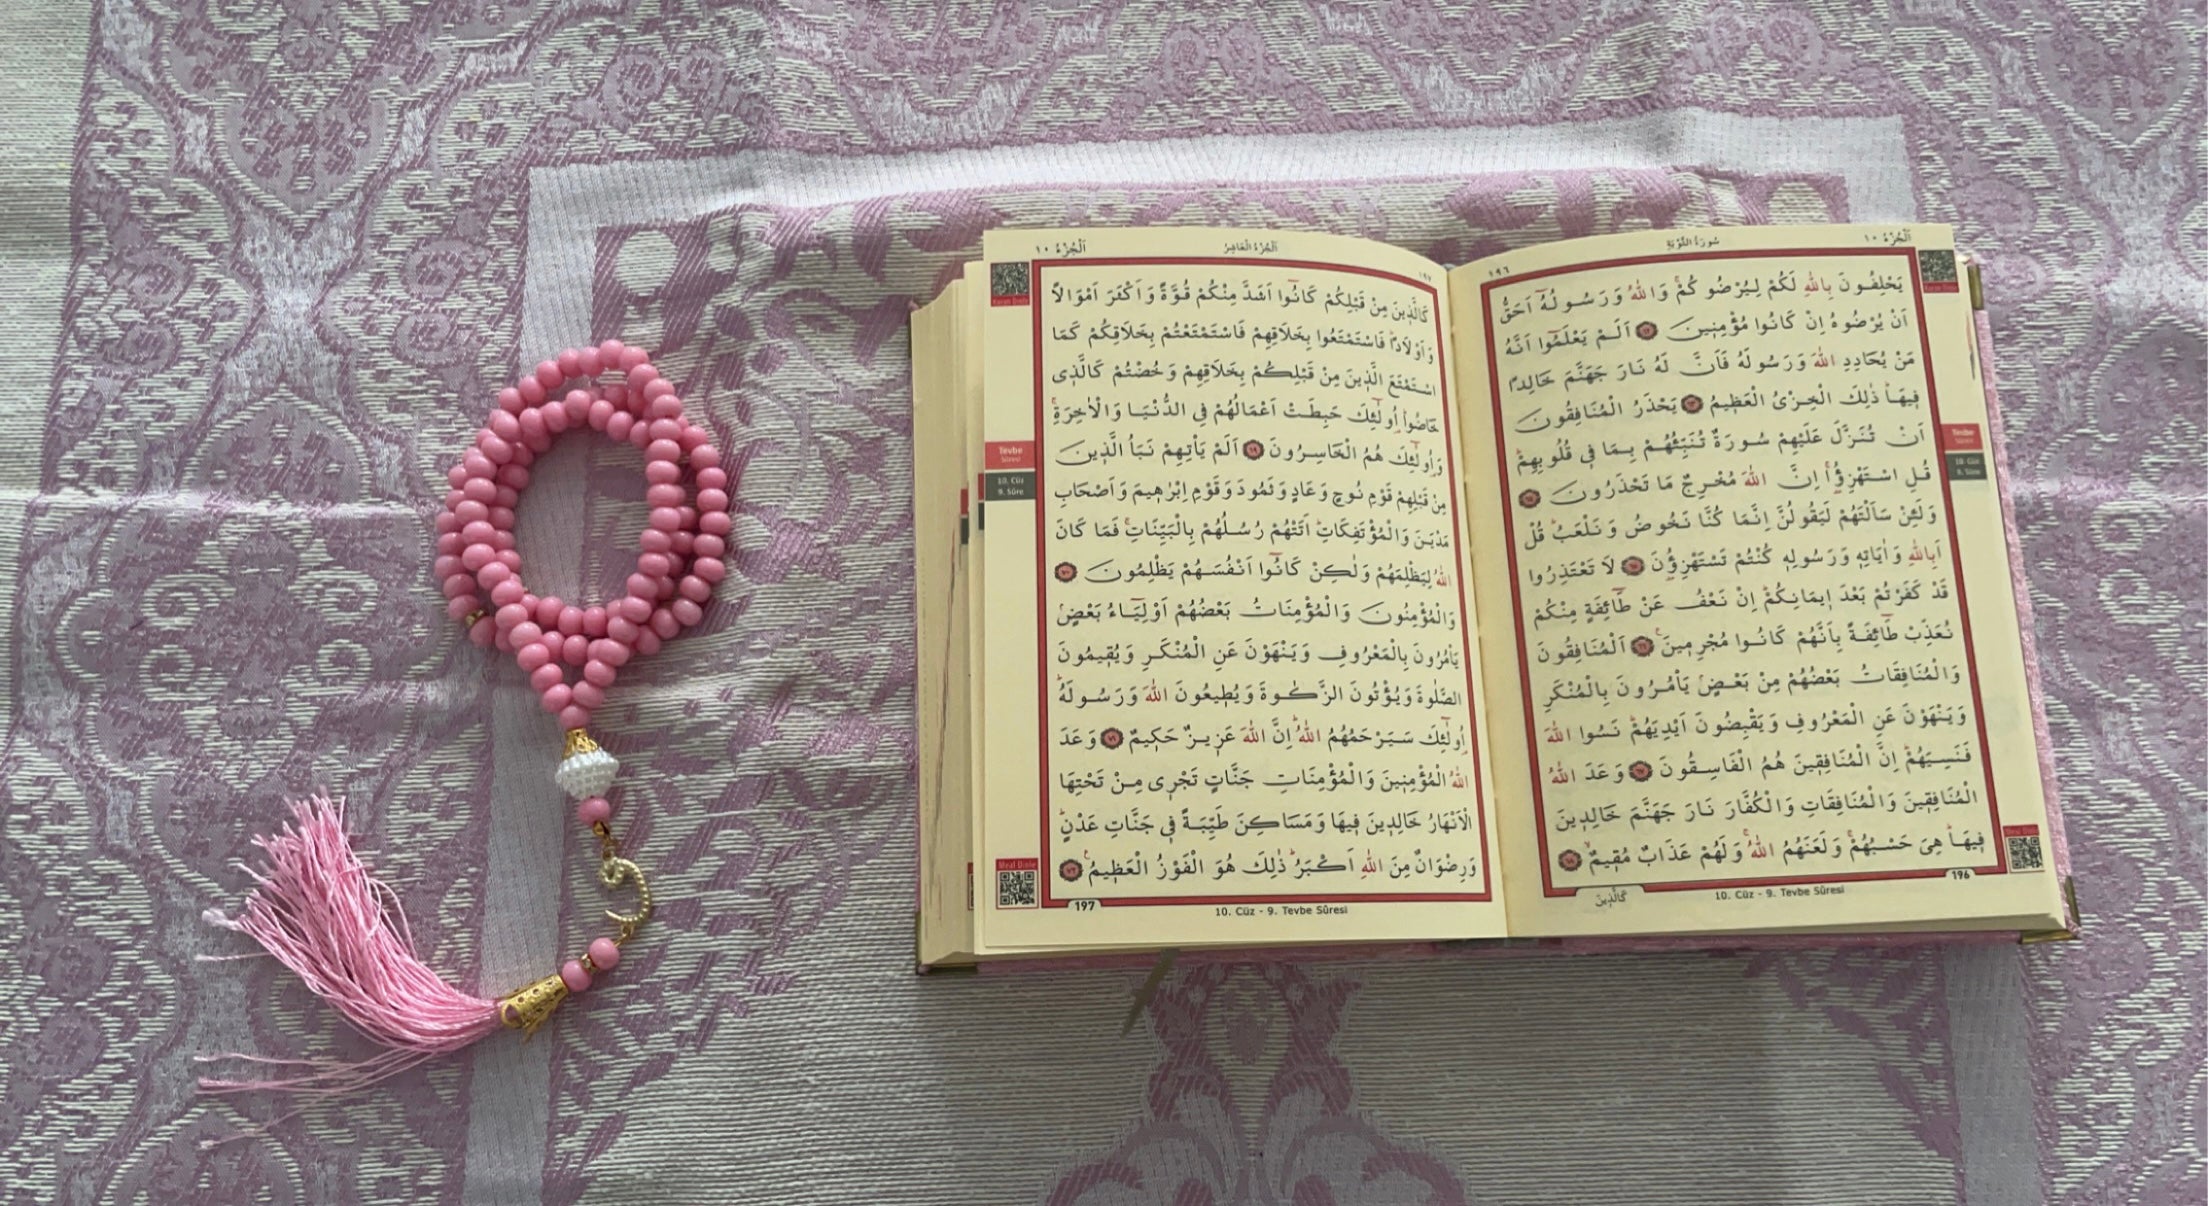 اَلْجُزْءُ ١٠
سُورَةُ التَّوْبَةِ
١٩٦
يَحْلِفُونَ بِاللّٰهِ لَكُمْ لِيُرْضُوكُمْۚ وَاللّٰهُ وَرَسُولُهُٓ اَحَقُّ
اَنْ يُرْضُوهُ اِنْ كَانُوا مُؤْمِنٖينَ ﴿٦٢﴾ اَلَمْ يَعْلَمُٓوا اَنَّهُ
مَنْ يُحَادِدِ اللّٰهَ وَرَسُولَهُ فَاَنَّ لَهُ نَارَ جَهَنَّمَ خَالِداً
فٖيهَاؕ ذٰلِكَ الْخِزْىُ الْعَظٖيمُ ﴿٦٣﴾ يَحْذَرُ الْمُنَافِقُونَ
اَنْ تُنَزَّلَ عَلَيْهِمْ سُورَةٌ تُنَبِّئُهُمْ بِمَا فٖى قُلُوبِهِمْؕ
قُلِ اسْتَهْزِؤُ۫اۚ اِنَّ اللّٰهَ مُخْرِجٌ مَا تَحْذَرُونَ ﴿٦٤﴾
وَلَئِنْ سَاَلْتَهُمْ لَيَقُولُنَّ اِنَّمَا كُنَّا نَخُوضُ وَنَلْعَبُؕ قُلْ
اَبِاللّٰهِ وَاٰيَاتِهٖ وَرَسُولِهٖ كُنْتُمْ تَسْتَهْزِؤُ۫نَ ﴿٦٥﴾ لَا تَعْتَذِرُوا
قَدْ كَفَرْتُمْ بَعْدَ اٖيمَانِكُمْؕ اِنْ نَعْفُ عَنْ طَٓائِفَةٍ مِنْكُمْ
نُعَذِّبْ طَٓائِفَةً بِاَنَّهُمْ كَانُوا مُجْرِمٖينَ۟ ﴿٦٦﴾ اَلْمُنَافِقُونَ
وَالْمُنَافِقَاتُ بَعْضُهُمْ مِنْ بَعْضٍۢ يَاْمُرُونَ بِالْمُنْكَرِ
وَيَنْهَوْنَ عَنِ الْمَعْرُوفِ وَيَقْبِضُونَ اَيْدِيَهُمْؕ نَسُوا اللّٰهَ
فَنَسِيَهُمْؕ اِنَّ الْمُنَافِقٖينَ هُمُ الْفَاسِقُونَ ﴿٦٧﴾ وَعَدَ اللّٰهُ
الْمُنَافِقٖينَ وَالْمُنَافِقَاتِ وَالْكُفَّارَ نَارَ جَهَنَّمَ خَالِدٖينَ
فٖيهَاؕ هِىَ حَسْبُهُمْۚ وَلَعَنَهُمُ اللّٰهُۚ وَلَهُمْ عَذَابٌ مُقٖيمٌۙ ﴿٦٨﴾
196
10. Cüz - 9. Tevbe Sûresi
كَالَّذٖينَ
Kuran Dinle
Tevbe
Sûresi
10. Cüz
9. Sûre
Meal Dinle
اَلْجُزْءُ ١٠
اَلْجُزْءُ الْعَاشِرُ
١٩٧
كَالَّذٖينَ مِنْ قَبْلِكُمْ كَانُٓوا اَشَدَّ مِنْكُمْ قُوَّةً وَاَكْثَرَ اَمْوَالاً
وَاَوْلَاداًؕ فَاسْتَمْتَعُوا بِخَلَاقِهِمْ فَاسْتَمْتَعْتُمْ بِخَلَاقِكُمْ كَمَا
اسْتَمْتَعَ الَّذٖينَ مِنْ قَبْلِكُمْ بِخَلَاقِهِمْ وَخُضْتُمْ كَالَّذٖى
خَاضُواؕ اُو۬لٰٓئِكَ حَبِطَتْ اَعْمَالُهُمْ فِى الدُّنْيَا وَالْاٰخِرَةِۚ
وَاُو۬لٰٓئِكَ هُمُ الْخَاسِرُونَ ﴿٦٩﴾ اَلَمْ يَاْتِهِمْ نَبَاُ الَّذٖينَ
مِنْ قَبْلِهِمْ قَوْمِ نُوحٍ وَعَادٍ وَثَمُودَ وَقَوْمِ اِبْرٰهٖيمَ وَاَصْحَابِ
مَدْيَنَ وَالْمُؤْتَفِكَاتِؕ اَتَتْهُمْ رُسُلُهُمْ بِالْبَيِّنَاتِۚ فَمَا كَانَ
اللّٰهُ لِيَظْلِمَهُمْ وَلٰكِنْ كَانُٓوا اَنْفُسَهُمْ يَظْلِمُونَ ﴿٧٠﴾
وَالْمُؤْمِنُونَ وَالْمُؤْمِنَاتُ بَعْضُهُمْ اَوْلِيَٓاءُ بَعْضٍۢ
يَاْمُرُونَ بِالْمَعْرُوفِ وَيَنْهَوْنَ عَنِ الْمُنْكَرِ وَيُقٖيمُونَ
الصَّلٰوةَ وَيُؤْتُونَ الزَّكٰوةَ وَيُطٖيعُونَ اللّٰهَ وَرَسُولَهُؕ
اُو۬لٰٓئِكَ سَيَرْحَمُهُمُ اللّٰهُؕ اِنَّ اللّٰهَ عَزٖيزٌ حَكٖيمٌ ﴿٧١﴾ وَعَدَ
اللّٰهُ الْمُؤْمِنٖينَ وَالْمُؤْمِنَاتِ جَنَّاتٍ تَجْرٖى مِنْ تَحْتِهَا
الْاَنْهَارُ خَالِدٖينَ فٖيهَا وَمَسَاكِنَ طَيِّبَةً فٖى جَنَّاتِ عَدْنٍؕ
وَرِضْوَانٌ مِنَ اللّٰهِ اَكْبَرُؕ ذٰلِكَ هُوَ الْفَوْزُ الْعَظٖيمُ۟ ﴿٧٢﴾
197
10. Cüz - 9. Tevbe Sûresi
Kuran Dinle
Tevbe
Sûresi
10. Cüz
9. Sûre
Meal Dinle